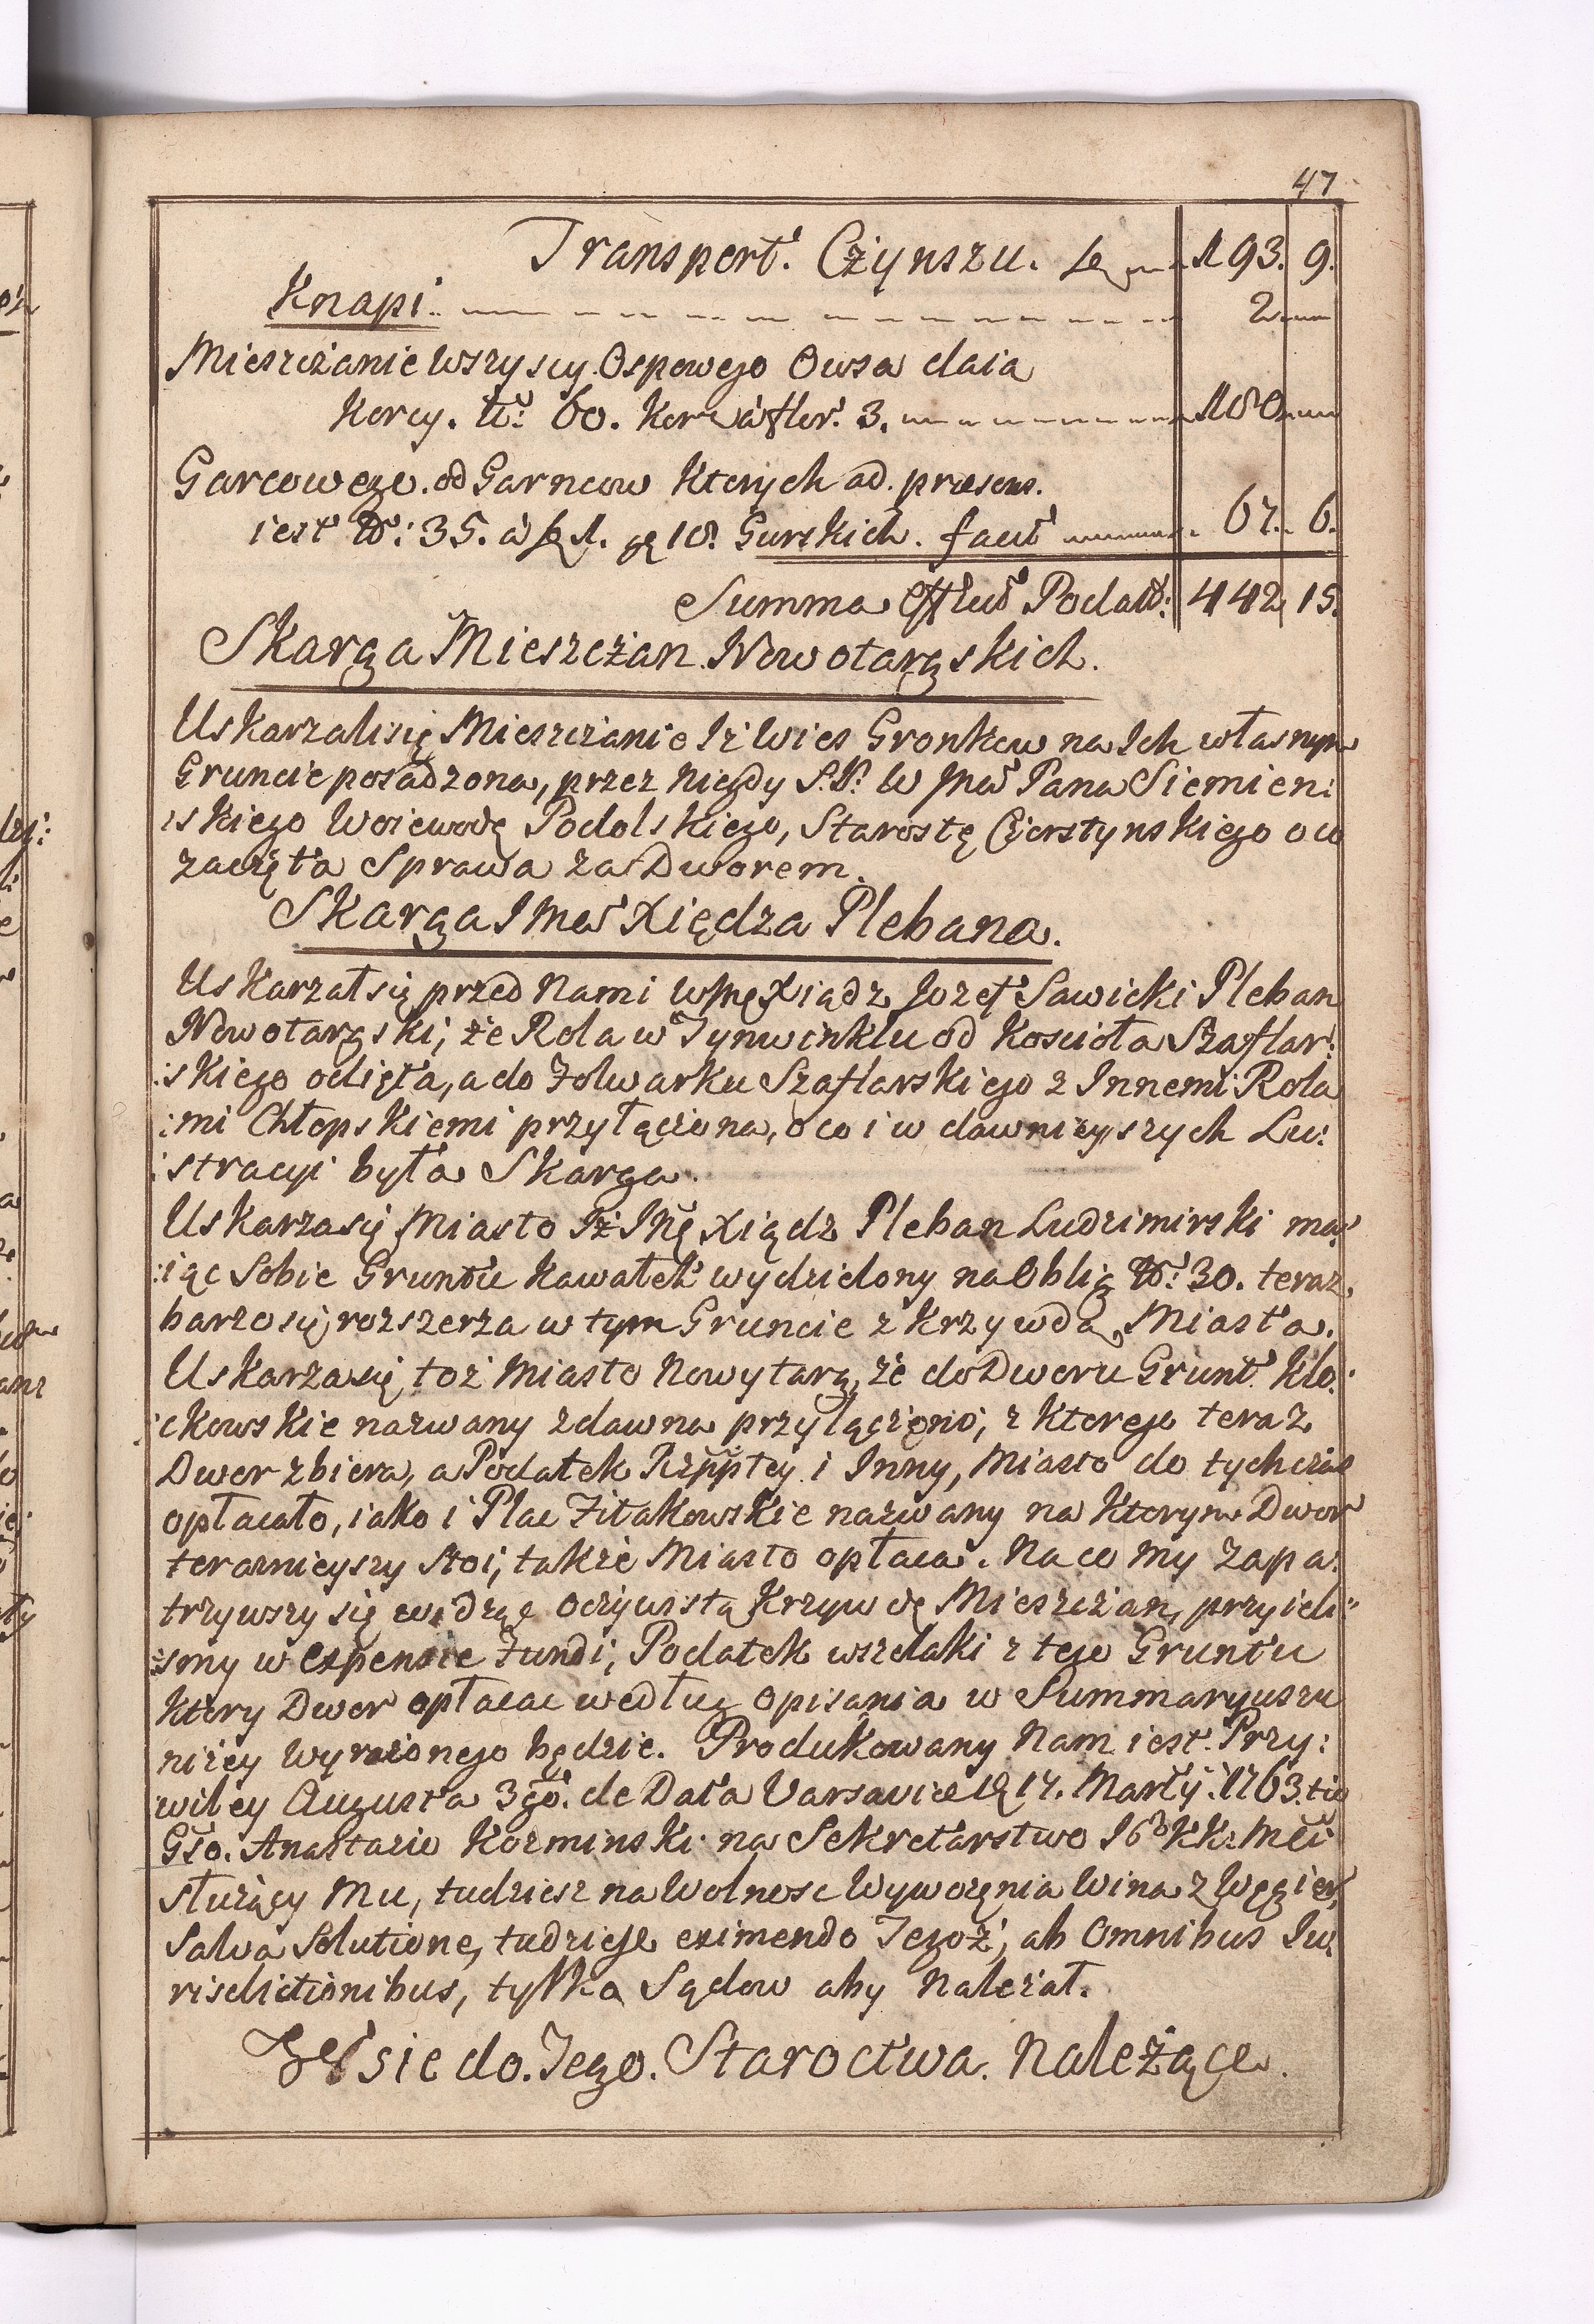 47
Transport. Czynszu. 193. 9.
Knapi 2
Miesczanie wszyscy Ospowego Owsa daia
Korcy. 60. à flor. 3. 180
Garcowego. od Garncow Ktorych ad. præsens.
iest No: 35. à 1. 18. Gurskich. facit 67. 6.
Summa Podatk: 442 15.
Skarga Mieszczan Nowotargskich.
Uskarzali się Miesczanie Iż Wies Gronkow na Ich własnym
Gruncie posadzona, przez niegdy S.P. W Pana Siemien:
:skiego Woiewodę Podolskiego, Starostę Czorstynskiego o co
zaczęta Sprawa za Dworem.
Skarga IMci Xiędza Plebana.
Uskarzał się przed Nami Xiądz Jozef Sawicki Pleban
Nowotargski, że Rola w Tynwinklu od Koscioła Szaflar:
:skiego odięta, a do Folwarku Szaflarskiego z Innemi Rola
:mi Chłopskiemi przyłączona, o co i w dawnieyszych Lu:
:stracyi była Skarga.
Uskarza się Miasto Iż Xiądz Pleban Ludzimirski ma:
:iąc Sobie Gruntu Kawałek wydzielony na Oblig No: 30. teraz
barzo się rozszerza w tym Gruncie z Krzywdą Miasta.
Uskarza się toż Miasto Nowytarg, że do Dworu Grunt Klo:
:ckowskie nazwany zdawna przyłączono, z Ktorego teraz
Dwor zbiera, a Podatek Rzpptey i Inny, Miasto do tychczas
opłacało, iako i Plac Fitakowskie nazwany na Ktorym Dwor
teraznieyszy stoi, także Miasto opłaca. Na co my zapa:
trzywszy się widząc oczywistą Krzywdę Mieszczan, przyieli:
:smy w expensie Fundi, Podatek wszelaki z tego Gruntu
Ktory Dwor opłacac według opisania w Summaryuszu
niżey wyrażonego będzie. Produkowany Nam iest Przy:
:wiley Augusta 3go. de Data Varsaviæ 17. Martÿ. 1763. tio
Gło. Anastazio Kozminski na Sekretarstwo
służący Mu, tudziesz na Wolnosc Wywożęnia Wina z Węgier,
Salva Solutione, tudziesz eximendo Jegoż, ab Omnibus Iu
risdictionibus, tylko Sądow aby Należał.
Wsie do. Tego. Staroctwa. Należące.